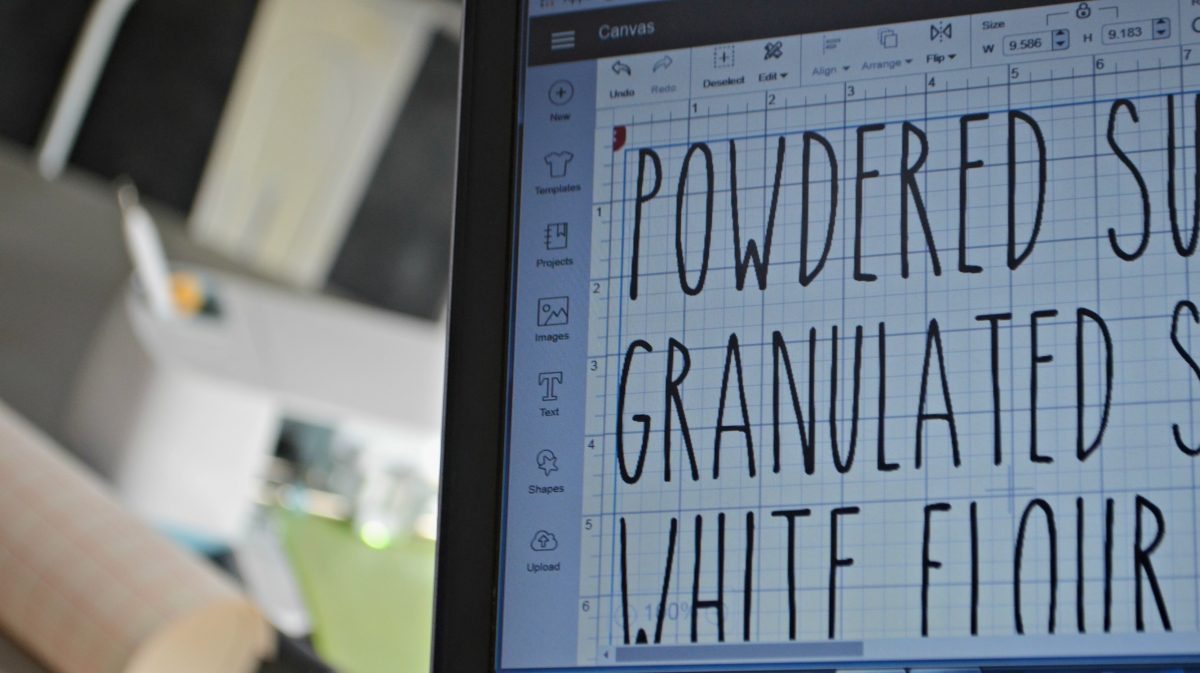 Canvas
Undo
Redo
Deselect
Edit
Align
Arrange
Flip
Size
W 9.586
H 9.183
1 2 3 4 5 6 7
New
Templates
Projects
Images
Text
Shapes
Upload
1
2
3
4
5
6
POWDERED SU
GRANULATED S
WHITE FLOUR
100%